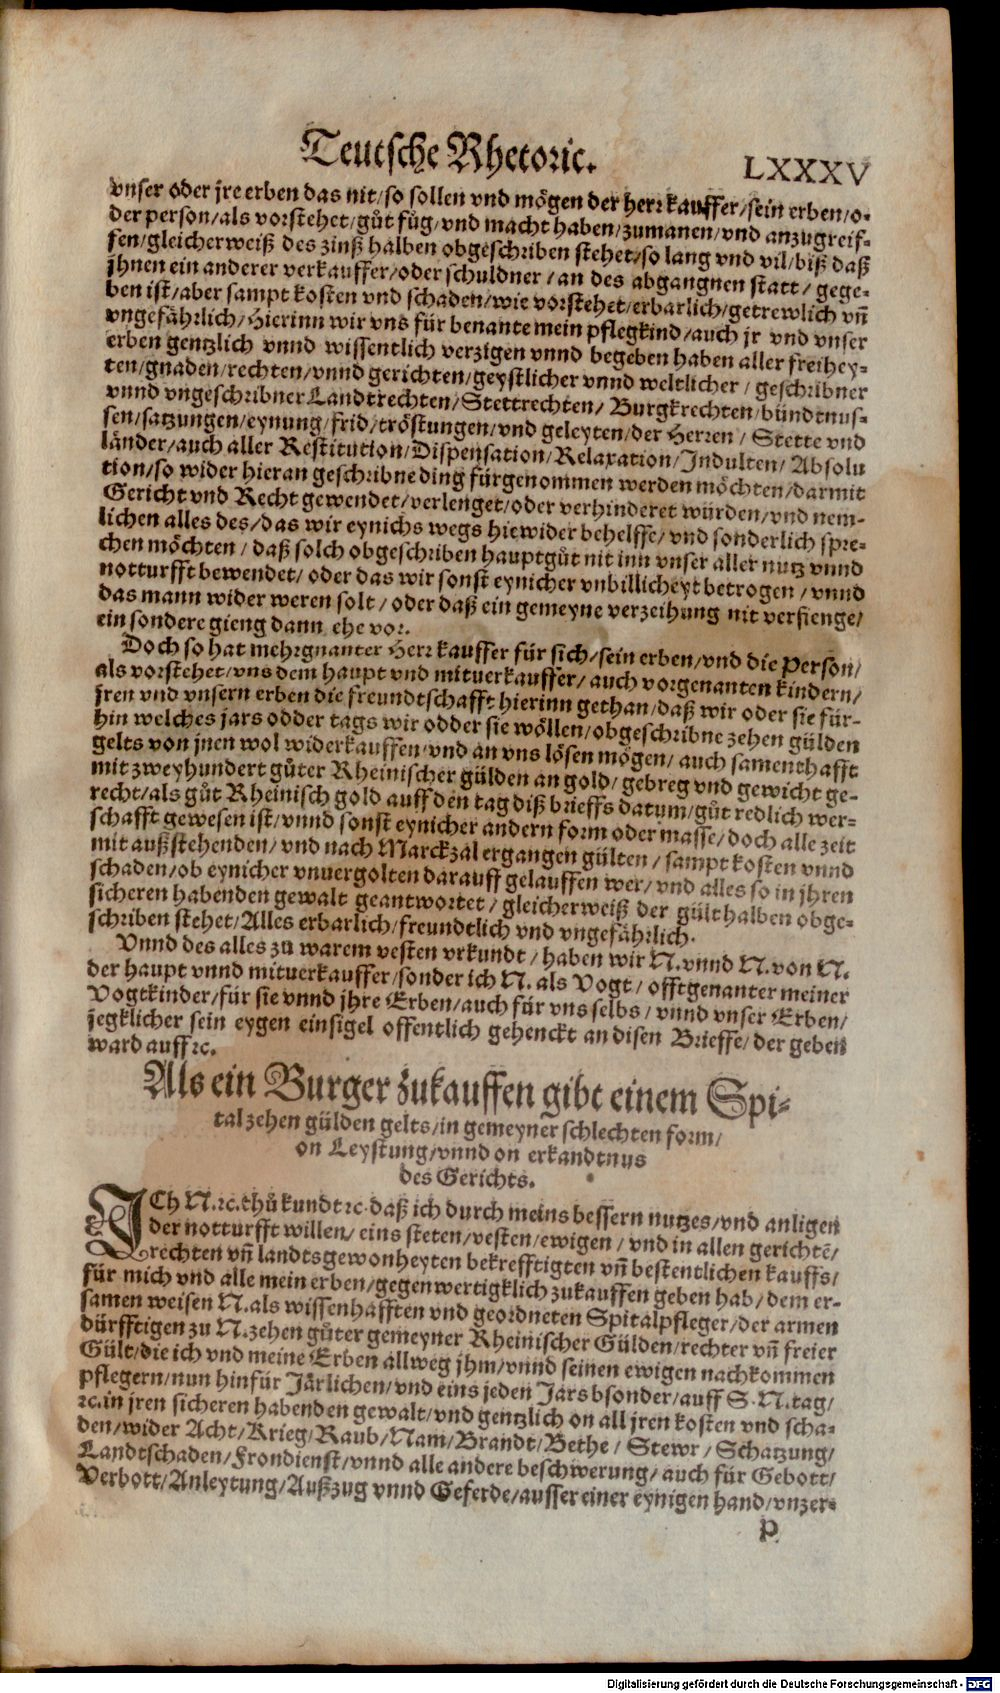 Teutsche Rhetoric. LXXXV
vnser oder jre erben das nit/so sollen vnd mögen der herr kauffer/sein erben/o-
der person/als vorstehet/gůt fůg/vnd macht haben/zumanen/vnd anzugreif-
fen/gleicherweiß des zinß halben obgeschriben stehet/so lang vnd vil/biß daß
jhnen ein anderer verkauffer/oder schuldner/an des abgangnen statt/gege-
ben ist/aber sampt kosten vnd schaden/wie vorstehet/erbarlich/getrewlich vñ
vngefährlich/Hierinn wir vns für benante mein pflegkind/auch jr vnd vnser
erben gentzlich vnnd wissentlich verzigen vnnd begeben haben aller freihey-
ten/gnaden/rechten/vnnd gerichten/geystlicher vnnd weltlicher/geschribner
vnnd vngeschribner Landtrechten/Stettrechten/Burgkrechten/bündtnus-
sen/satzungen/eynung/frid/tröstungen/vnd geleyten/der Herren/Stette vnd
länder/auch aller Restitution/Dispensation/Relaxation/Indulten/Absolu
tion/so wider hieran geschribne ding fürgenommen werden möchten/darmit
Gericht vnd Recht gewendet/verlenget/oder verhinderet würden/vnd nem-
lichen alles des/das wir eynichs wegs hiewider behelffe/vnd sonderlich spre-
chen möchten/daß solch obgeschriben hauptgůt nit inn vnser aller nutz vnnd
notturfft bewendet/oder das wir sonst eynicher vnbillicheyt betrogen/vnnd
das mann wider weren solt/oder daß ein gemeyne verzeihung nit verfienge/
ein sondere gieng dann ehe vor.
Doch so hat mehrgnanter Herr kauffer für sich/sein erben/vnd die Person/
als vorstehet/vns dem haupt vnd mituerkauffer/auch vorgenanten kindern/
jren vnd vnsern erben die freundtschafft hierinn gethan/daß wir oder sie für-
hin welches jars odder tags wir odder sie wöllen/obgeschribne zehen gülden
gelts von jnen wol widerkauffen/vnd an vns lösen mögen/auch samenthafft
mit zweyhundert gůter Rheinischer gülden an gold/gebreg vnd gewicht ge-
recht/als gůt Rheinisch gold auff den tag diß brieffs datum/gůt redlich wer-
schafft gewesen ist/vnnd sonst eynicher andern form oder masse/doch alle zeit
mit außstehenden/vnd nach Marckzal ergangen gülten/sampt kosten vnnd
schaden/ob eynicher vnuergolten darauff gelauffen wer/vnd alles so in jhren
sicheren habenden gewalt geantwortet/gleicherweiß der gült halben obge-
schriben stehet/Alles erbarlich/freundtlich vnd vngefährlich.
Vnnd des alles zu warem vesten vrkundt/haben wir N. vnnd N. von N.
der haupt vnnd mituerkauffer/sonder ich N. als Vogt/offtgenanter meiner
Vogtkinder/für sie vnnd jhre Erben/auch für vns selbs/vnnd vnser Erben/
jegklicher sein eygen einsigel offentlich gehenckt an disen Brieffe/der geben
ward auff ꝛc.
Als ein Burger zukauffen gibt einem Spi-
tal zehen gülden gelts/in gemeyner schlechten form/
on Leystung/vnnd on erkandtnus
des Gerichts.
ICh N. ꝛc. thů kundt ꝛc. daß ich durch meins bessern nutzes/vnd anligen
der notturfft willen/eins steten/vesten/ewigen/vnd in allen gerichtē/
rechten vñ landtsgewonheyten bekrefftigten vñ bestentlichen kauffs/
für mich vnd alle mein erben/gegenwertigklich zukauffen geben hab/dem er-
samen weisen N. als wissenhafften vnd geordneten Spitalpfleger/der armen
dürfftigen zu N. zehen gůter gemeyner Rheinischer Gülden/rechter vñ freier
Gült/die ich vnd meine Erben allweg jhm/vnnd seinen ewigen nachkommen
pflegern/nun hinfür Järlichen/vnd eins jeden Jars bsonder/auff S. N. tag/
ꝛc. in jren sicheren habenden gewalt/vnd gentzlich on all jren kosten vnd scha-
den/wider Acht/Krieg/Raub/Nam/Brandt/Bethe/Stewr/Schatzung/
Landtschaden/Frondienst/vnnd alle andere beschwerung/auch für Gebott/
Verbott/Anleytung/Außzug vnnd Geferde/ausser einer eynigen hand/vnzer-
P
Digitalisierung gefördert durch die Deutsche Forschungsgemeinschaft - DFG